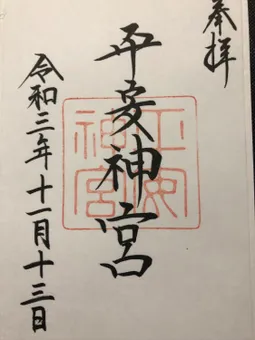 奉拝
平安神宮
令和三年十一月十三日
平安神宮